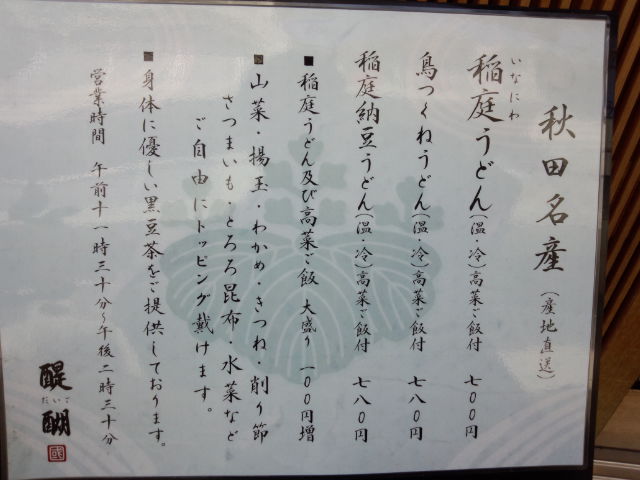 秋田名産(産地直送)
いなにわ
稲庭うどん(温・冷)高菜ご飯付 七〇〇円
鳥つくねうどん(温・冷)高菜ご飯付 七八〇円
稲庭納豆うどん(温・冷)高菜ご飯付 七八〇円
■稲庭うどん及び高菜ご飯 大盛り 一〇〇円増
■山菜・揚玉・わかめ・きつね・削り節
さつまいも・とろろ昆布・水菜など
ご自由にトッピング戴けます。
■身体に優しい黒豆茶をご提供しております。
営業時間 午前十一時三十分~午後二時三十分
醍醐
だいご